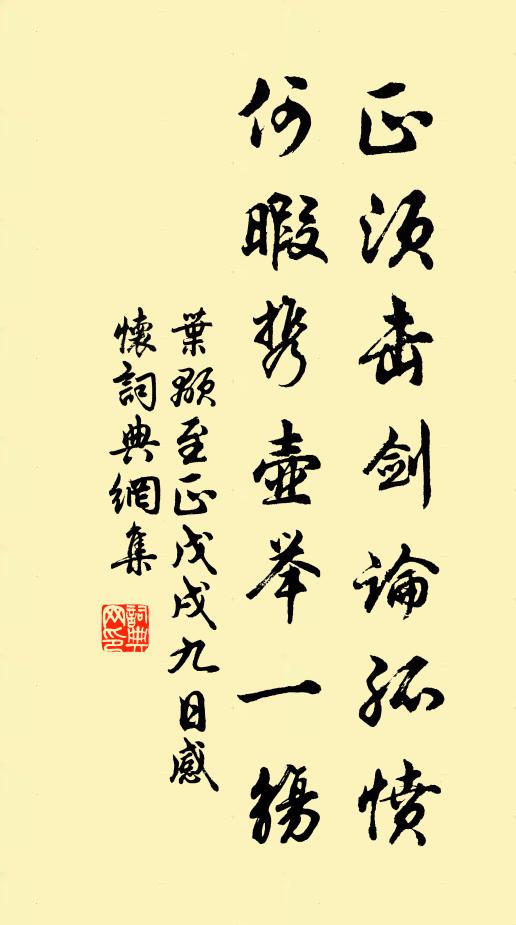 正须击劍論孤憤
何暇携壺举一觴
葉顒至正戊戌九日感
懷詞典網集
詞典网印